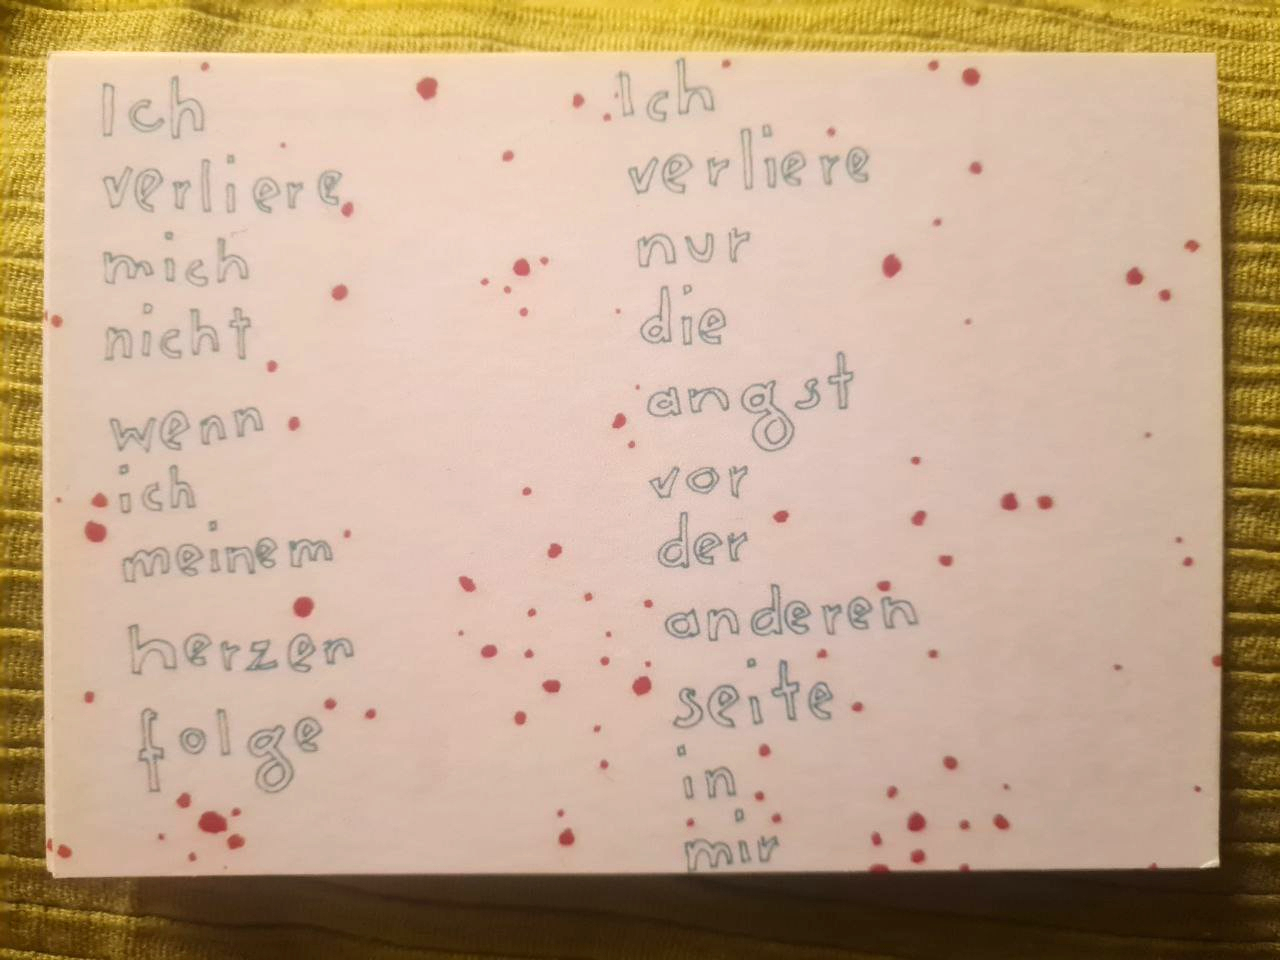 Ich
verliere
mich
nicht
wenn
ich
meinem
herzen
folge
Ich
verliere
nur
die
angst
vor
der
anderen
seite
in
mir